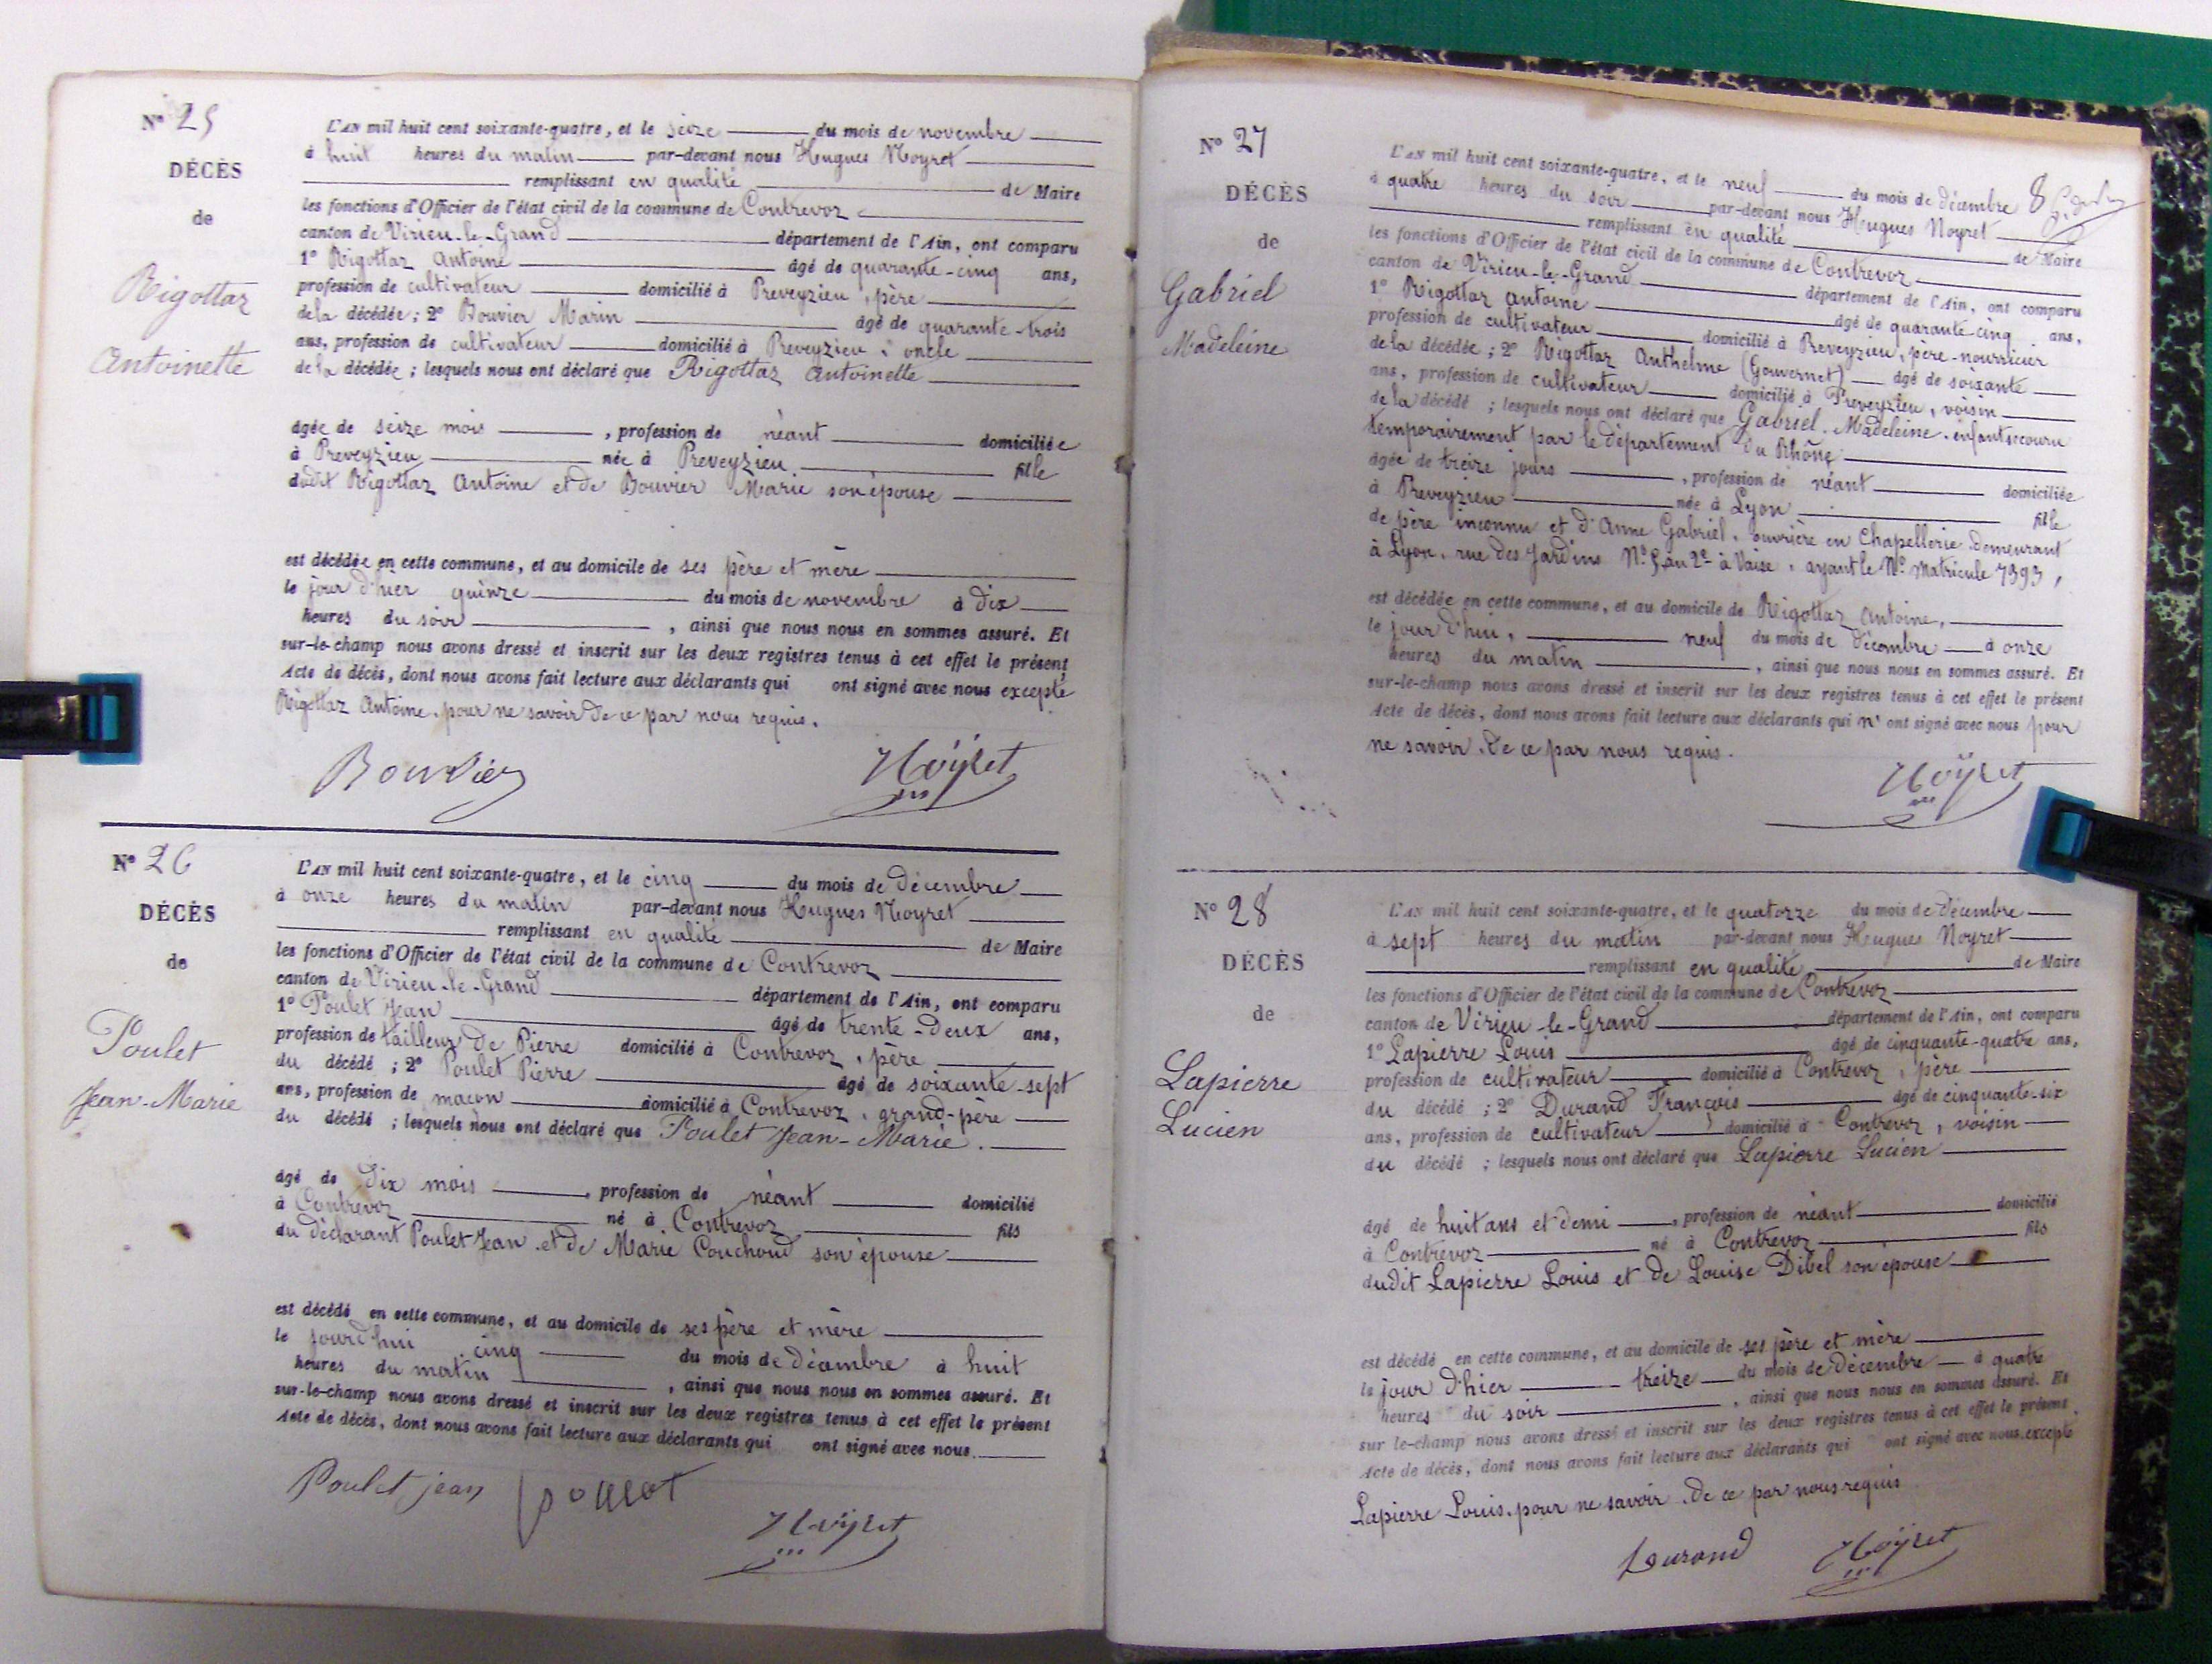 Nº 25
DÉCÈS
de
Rigottaz
Antoinette
L'AN mil huit cent soixante-quatre, et le seize du mois de novembre
à huit heures du matin par-devant nous Hugues Noyret
remplissant en qualité de Maire
les fonctions d'Officier de l'état civil de la commune de Contrevoz
canton de Virieu-le-Grand département de l'Ain, ont comparu
1º Rigottaz Antoine âgé de quarante-cinq ans,
profession de cultivateur domicilié à Preveyzieu, père
de la décédée; 2º Bouvier Marin âgé de quarante-trois
ans, profession de cultivateur domicilié à Preveyzieu, oncle
de la décédée; lesquels nous ont déclaré que Rigottaz Antoinette
âgée de seize mois, profession de néant domiciliée
à Preveyzieu née à Preveyzieu fille
dudit Rigottaz Antoine et de Bouvier Marie son épouse
est décédée en cette commune, et au domicile de ses père et mère
le jour d'hier quinze du mois de novembre à dix
heures du soir, ainsi que nous nous en sommes assuré. Et
sur-le-champ nous avons dressé et inscrit sur les deux registres tenus à cet effet le présent
Acte de décès, dont nous avons fait lecture aux déclarants qui ont signé avec nous excepté
Rigottaz Antoine, pour ne savoir de ce par nous requis.
Bouvier Noyret
Nº 26
DÉCÈS
de
Poulet
Jean-Marie
L'AN mil huit cent soixante-quatre, et le cinq du mois de décembre
à onze heures du matin par-devant nous Hugues Noyret
remplissant en qualité de Maire
les fonctions d'Officier de l'état civil de la commune de Contrevoz
canton de Virieu-le-Grand département de l'Ain, ont comparu
1º Poulet Jean âgé de trente-deux ans,
profession de tailleur de Pierre domicilié à Contrevoz, père
du décédé; 2º Poulet Pierre âgé de soixante-sept
ans, profession de maçon domicilié à Contrevoz, grand-père
du décédé; lesquels nous ont déclaré que Poulet Jean-Marie.
âgé de dix mois, profession de néant domicilié
à Contrevoz né à Contrevoz fils
du déclarant Poulet Jean et de Marie Couchoud son épouse
est décédé en cette commune, et au domicile de ses père et mère
le jourd'hui cinq du mois de décembre à huit
heures du matin, ainsi que nous nous en sommes assuré. Et
sur-le-champ nous avons dressé et inscrit sur les deux registres tenus à cet effet le présent
Acte de décès, dont nous avons fait lecture aux déclarants qui ont signé avec nous.
Poulet jean poulet
Noyret
Nº 27
DÉCÈS
de
Gabriel
Madeleine
8
L'AN mil huit cent soixante-quatre, et le neuf du mois de décembre
à quatre heures du soir par-devant nous Hugues Noyret
remplissant en qualité de Maire
les fonctions d'Officier de l'état civil de la commune de Contrevoz
canton de Virieu-le-Grand département de l'Ain, ont comparu
1º Rigottaz Antoine âgé de quarante cinq ans,
profession de cultivateur domicilié à Preveyzieu, père-nourricier
de la décédée; 2º Rigottaz Anthelme (Gouvernet) âgé de soixante
ans, profession de cultivateur domicilié à Preveyzieu, voisin
de la décédé; lesquels nous ont déclaré que Gabriel Madeleine enfant secouru
temporairement par le département du Rhône
âgée de treize jours, profession de néant domiciliée
à Preveyzieu née à Lyon fille
de père inconnu et d'Anne Gabriel, ouvrière en Chapellerie demeurant
à Lyon, rue des Jardins Nº 5 au 2e à Vaise, ayant le Nº Matricule 7393,
est décédée en cette commune, et au domicile de Rigottaz Antoine,
le jourd'hui, neuf du mois de décembre à onze
heures du matin, ainsi que nous nous en sommes assuré. Et
sur-le-champ nous avons dressé et inscrit sur les deux registres tenus à cet effet le présent
Acte de décès, dont nous avons fait lecture aux déclarants qui n'ont signé avec nous pour
ne savoir, de ce par nous requis.
Noyret
Nº 28
DÉCÈS
de
Lapierre
Lucien
L'AN mil huit cent soixante-quatre, et le quatorze du mois de décembre
à sept heures du matin par-devant nous Hugues Noyret
remplissant en qualité de Maire
les fonctions d'Officier de l'état civil de la commune de Contrevoz
canton de Virieu-le-Grand département de l'Ain, ont comparu
1º Lapierre Louis âgé de cinquante-quatre ans,
profession de cultivateur domicilié à Contrevoz, père
du décédé; 2º Durand François âgé de cinquante-six
ans, profession de cultivateur domicilié à Contrevoz, voisin
du décédé; lesquels nous ont déclaré que Lapierre Lucien
âgé de huit ans et demi, profession de néant domicilié
à Contrevoz né à Contrevoz fils
dudit Lapierre Louis et de Louise Dibel son épouse
est décédé en cette commune, et au domicile de ses père et mère
le jour d'hier treize du mois de décembre à quatre
heures du soir, ainsi que nous nous en sommes assuré. Et
sur le-champ nous avons dressé et inscrit sur les deux registres tenus à cet effet le présent
Acte de décès, dont nous avons fait lecture aux déclarants qui ont signé avec nous excepté
Lapierre Louis, pour ne savoir de ce par nous requis
Durand Noyret